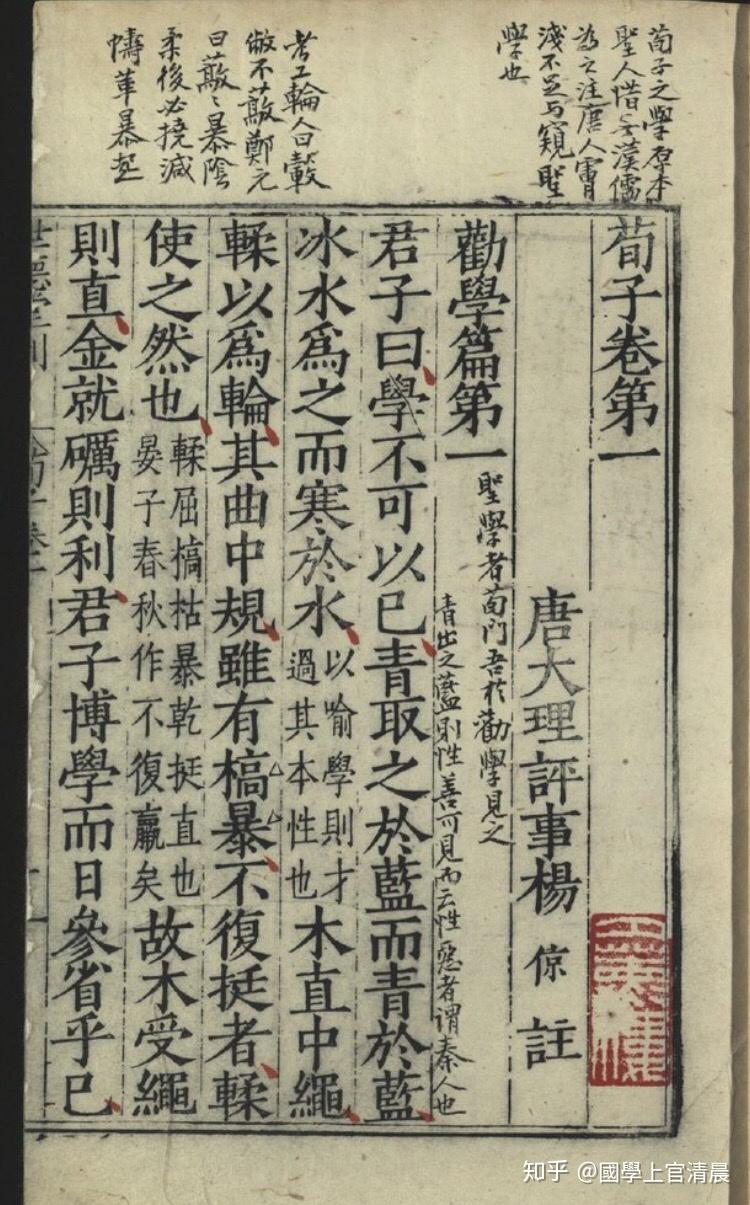 荀子之學原本
聖人惜無漢儒
為之注唐人膚
淺不足与窺聖
學也
考工輪人曰轂
敝不藃鄭元
曰藃藃暴陰
柔後必橈減
幬革暴起
荀子卷第一
唐大理評事楊倞註
勸學篇第一
聖學者荀門吾於勸學見之
青出之藍則性善可見而云性惡者谓秦人也
君子曰學不可以已青取之於藍而青於藍
冰水爲之而寒於水以喻學則才過其本性也木直中繩
輮以爲輪其曲中規雖有槁暴不復挺者輮
使之然也輮屈槁枯暴乾挺直也晏子春秋作不復贏矣故木受繩
則直金就礪則利君子博學而日參省乎已
世德堂刊
知乎 @國學上官清晨